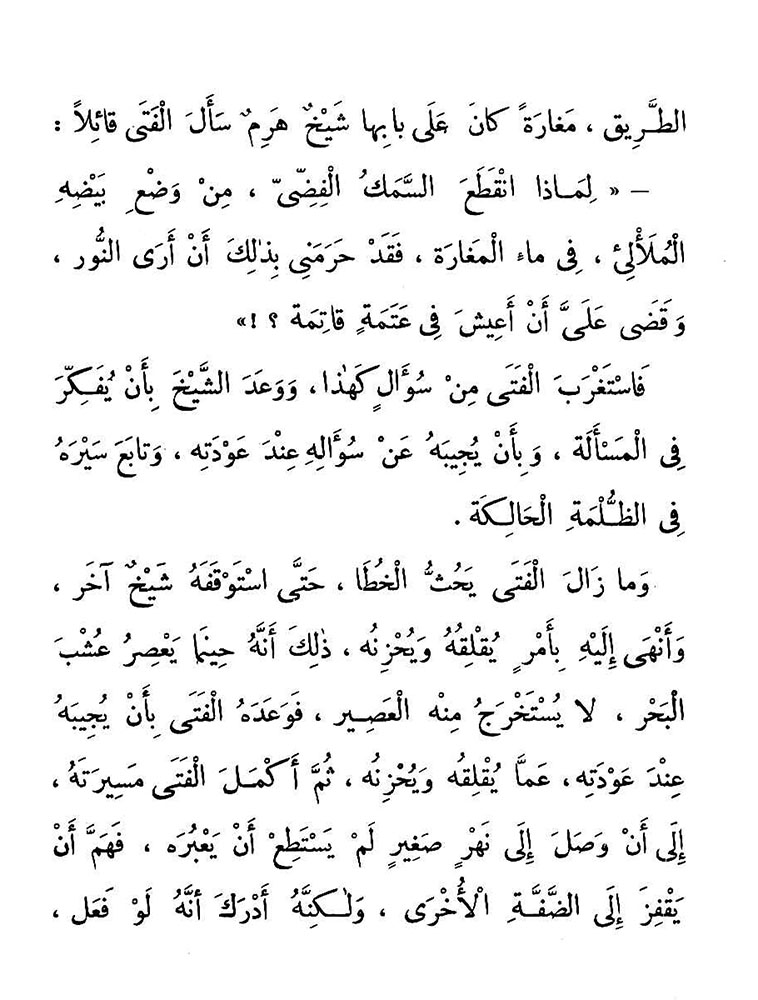 الطَّرِيق ، مَغارَةً كانَ عَلَى بابِها شَيْخٌ هَرِمٌ سَأَلَ الْفَتَى قائِلاً :
– « لِمَاذا انْقَطَعَ السَّمَكُ الْفِضِّىّ ، مِنْ وَضْعِ بَيْضِهِ
الْمُلَأْلِئِ ، فِى ماء الْمَغارَة ، فَقَدْ حَرَمَنِى بِذٰلِكَ أَنْ أَرَى النُّور ،
وَقَضَى عَلَىَّ أَنْ أَعِيشَ فِى عَتَمَةٍ قاتِمَة ؟ !»
فَاسْتَغْرَبَ الْفَتَى مِنْ سُؤَالٍ كَهٰذا، وَوَعَدَ الشَّيْخَ بِأَنْ يُفَكِّرَ
فِى الْمَسْأَلَة ، وَبِأَنْ يُجِيبَهُ عَنْ سُؤَالِهِ عِنْدَ عَوْدَتِه ، وَتابَعَ سَيْرَهُ
فِى الظُّلْمَةِ الْحَالِكَة .
وَما زَالَ الْفَتَى يَحُثُّ الْخُطَا ، حَتَّى اسْتَوْقَفَهُ شَيْخٌ آخَر ،
وَأَنْهَى إِلَيْهِ بِأَمْرٍ يُقْلِقُهُ وَيُحْزِنُه ، ذٰلِكَ أَنَّهُ حِينَما يَعْصِرُ عُشْبَ
الْبَحْر ، لا يُسْتَخْرَجُ مِنْه الْعَصِير ، فَوَعَدَهُ الْفَتَى بِأَنْ يُجِيبَهُ
عِنْدَ عَوْدَتِه، عَمَّا يُقْلِقُه وَيُحْزِنُه ، ثُمَّ أَكْمَلَ الْفَتَى مَسِيرَتَهُ ،
إِلَى أَنْ وَصَلَ إِلَى نَهْرٍ صَغِيرٍ لَمْ يَسْتَطِعْ أَنْ يَعْبُرَه ، فَهَمَّ أَنْ
يَقْفِزَ إِلَى الضَّفَّةِ الْأُخْرَى ، وَلٰكِنَّهُ أَدْرَكَ أنَّهُ لَوْ فَعَل ،